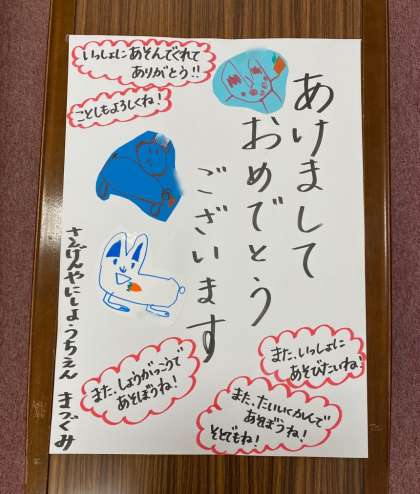 あけまして
おめでとう
ございます
いっしょにあそんでくれて
ありがとう!!
ことしもよろしくね!
また、いっしょに
あそびたいね!
また、たいいくかんで
あそぼうね!
そとでもね!
また、しょうがっこうで
あそぼうね!
さぎのや にしようちえん まつぐみ